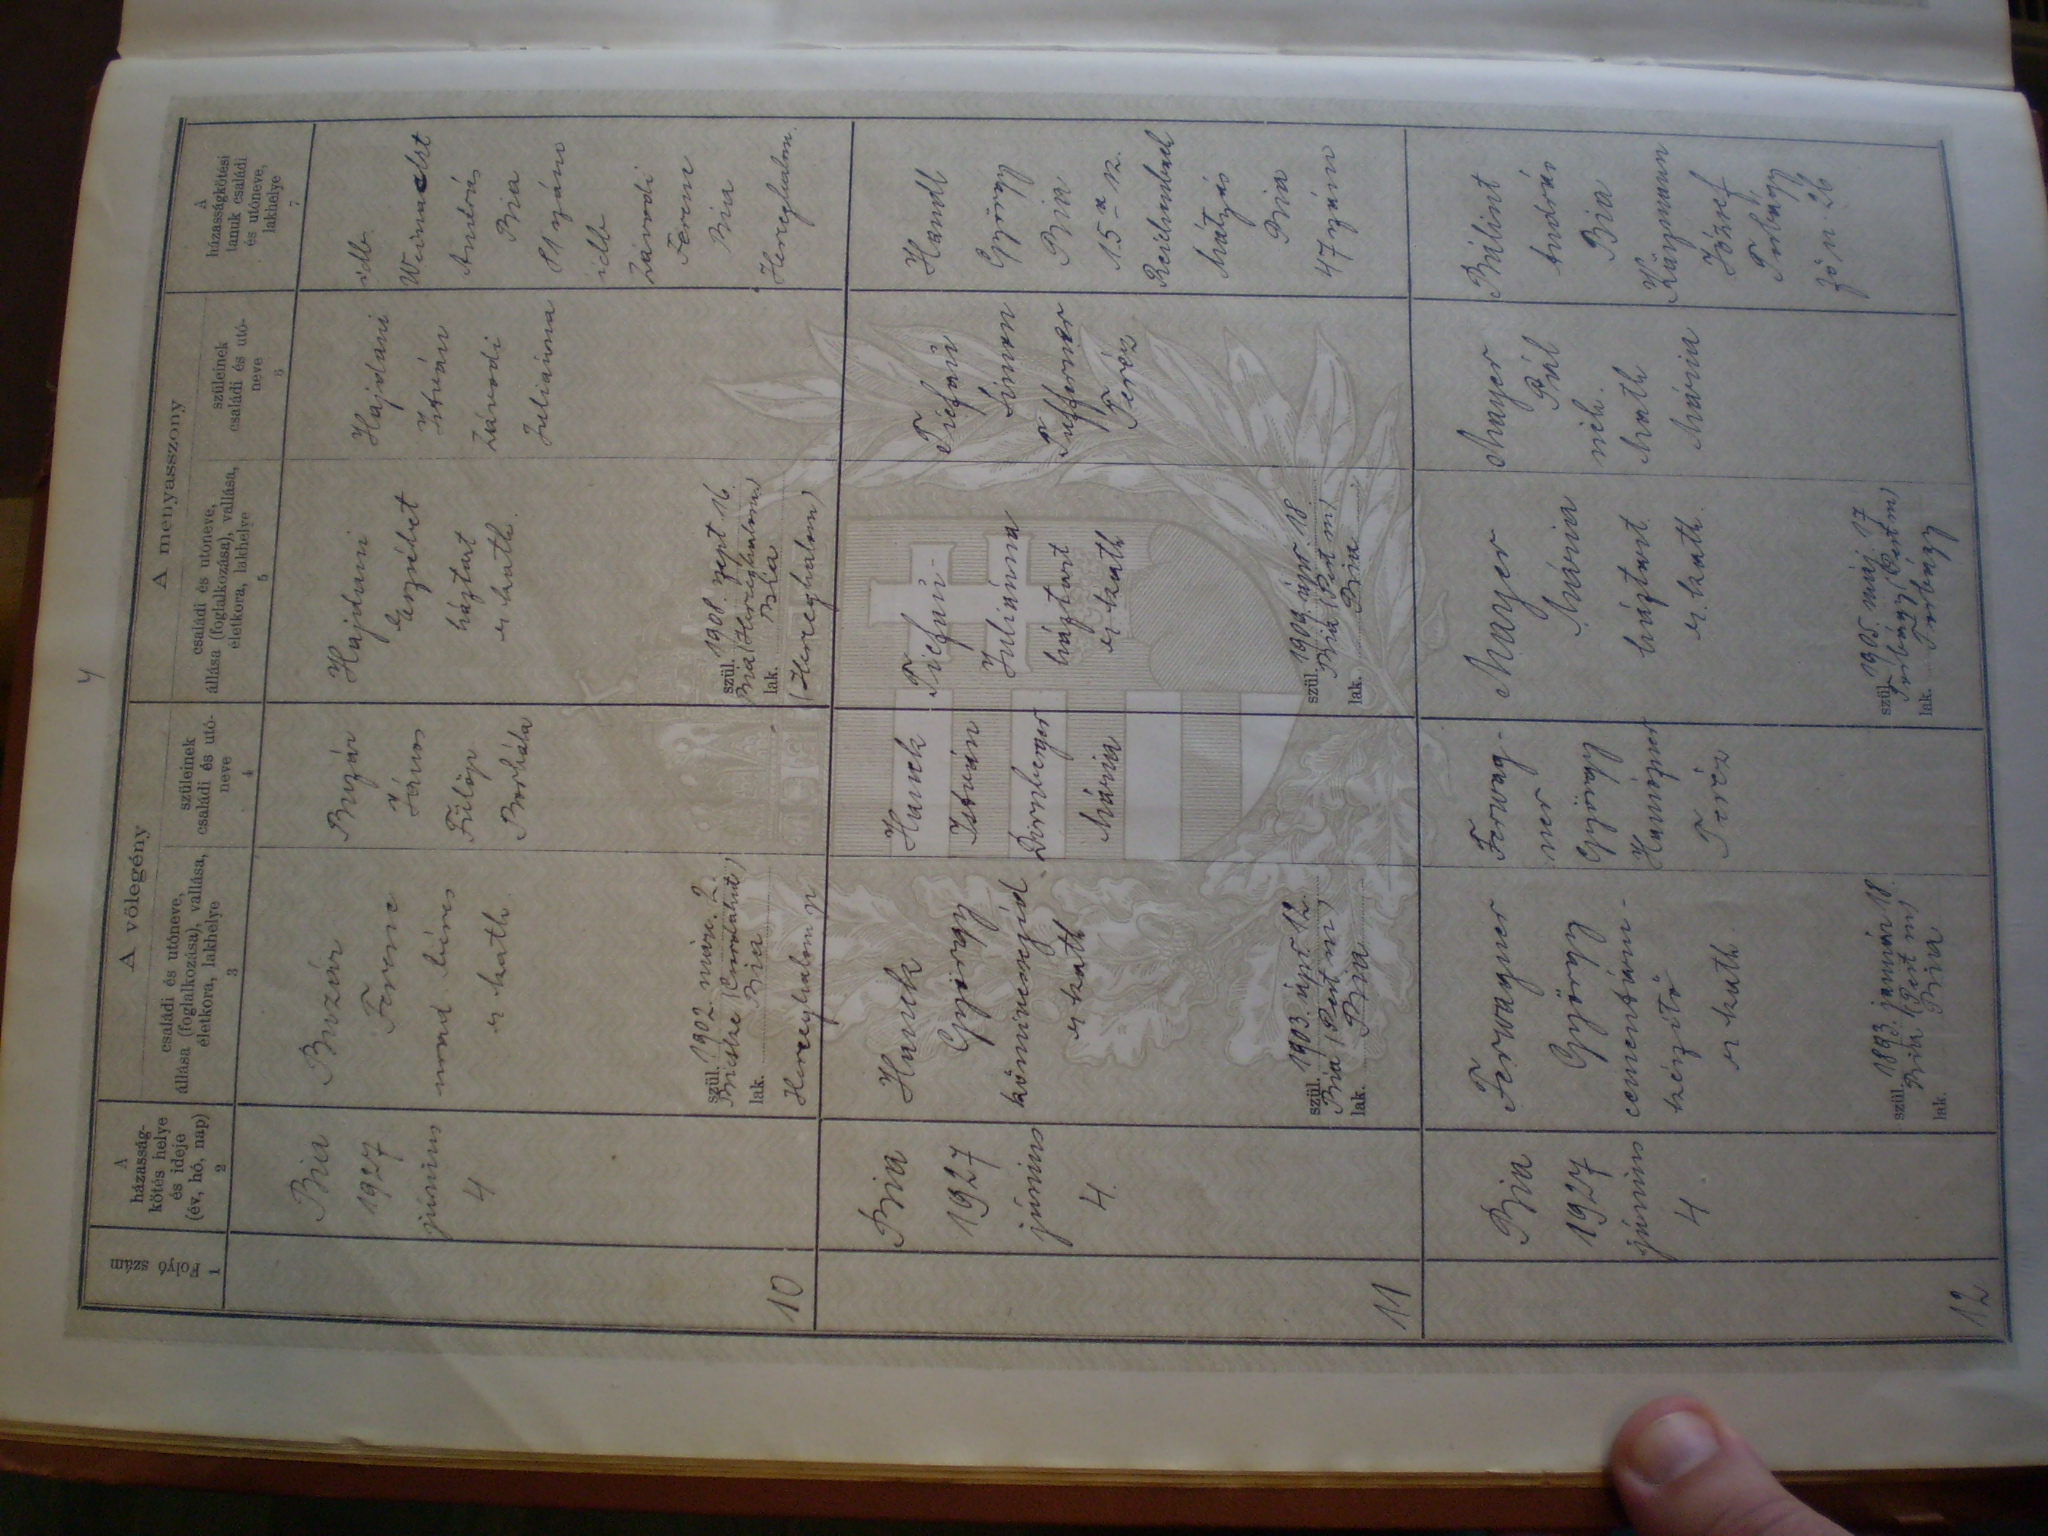 4
A vőlegény
A menyasszony
Folyó szám
1
A
házasság-
kötés helye
és ideje
(év, hó, nap)
2
családi és utóneve,
állása (foglalkozása), vallása,
életkora, lakhelye
3
szüleinek
családi és utó-
neve
4
családi és utóneve,
állása (foglalkozása), vallása,
életkora, lakhelye
5
szüleinek
családi és utó-
neve
6
A
házasságkötési
tanuk családi
és utóneve,
lakhelye
7
10
Bia
1927
június
4
Buzár
Ferenc
urad. béres
r. kath.
szül. 1902. márc. 2.
Bicske (Csordakút)
lak. Bia
Herceghalom p.
Buzár
János
Fülöp
Borbála
Hajdani
Erzsébet
háztart
r. kath.
szül. 1908. szept 16.
Bia (Herceghalom)
lak. Bia
(Herceghalom)
Hajdani
István
Závodi
Juliánna
idb.
András
Bia
81 szám
idb
Závodi
Ferenc
Bia
Herceghalom.
11
Bia
1927
június
4.
Hanek
György
kőművessegéd
r. kath
szül. 1903. ápr. 12.
Bia (Pest m)
lak. Bia
Hanek
István
Dörnberger
Mária
Tiefau-
Juliánna
háztart
r. kath
szül. 1909. ápr. 18
Bia (Pest m)
lak. Bia
Tiefau
Simon
Tafferner
Teréz
Handl
György
Bia
Reichenbach
Mátyás
Bia
47 szám
12
Bia
1927
június
4
Ferwagner
György
cementáru-
készítő
r. kath.
szül. 1893. január 18.
Bia (Pest m)
lak. Bia
Ferwag-
ner
György
Teréz
Mayer
Mária
háztart
r. kath.
szül. 1905. máj. 17
Torbágy (Pest m)
lak. Torbágy
Mayer
Pál
néh.
Mária
Bálint
András
Bia
József
Torbágy